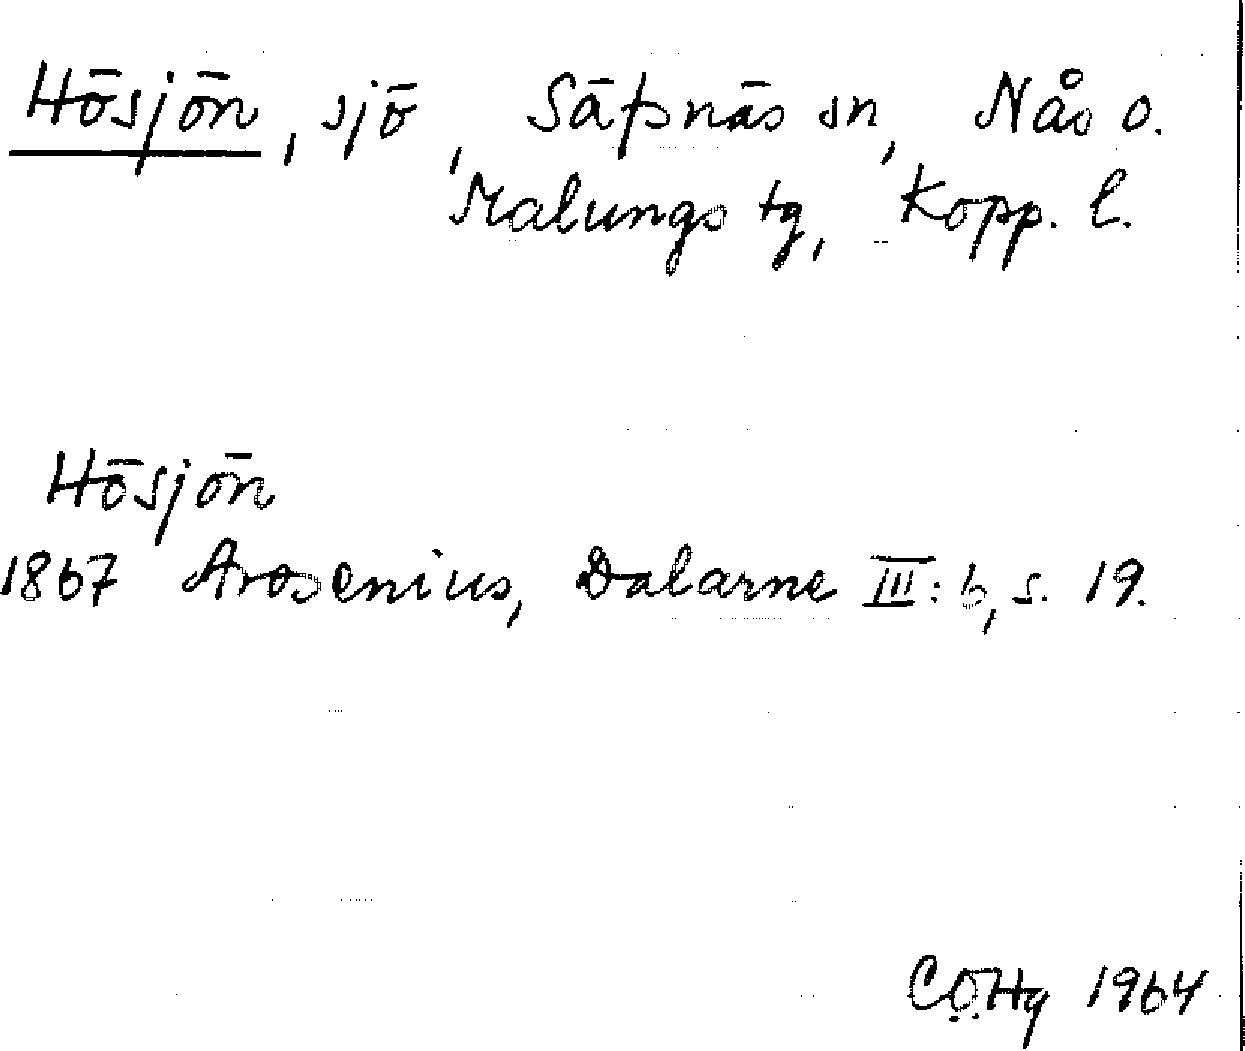 Hösjön, sjö, Säfsnäs sn, Nås o.
Malungs tg, Kopp. l.
Hösjön
1867 Arosenius, Dalarne III: b, s. 19.
COHg 1964